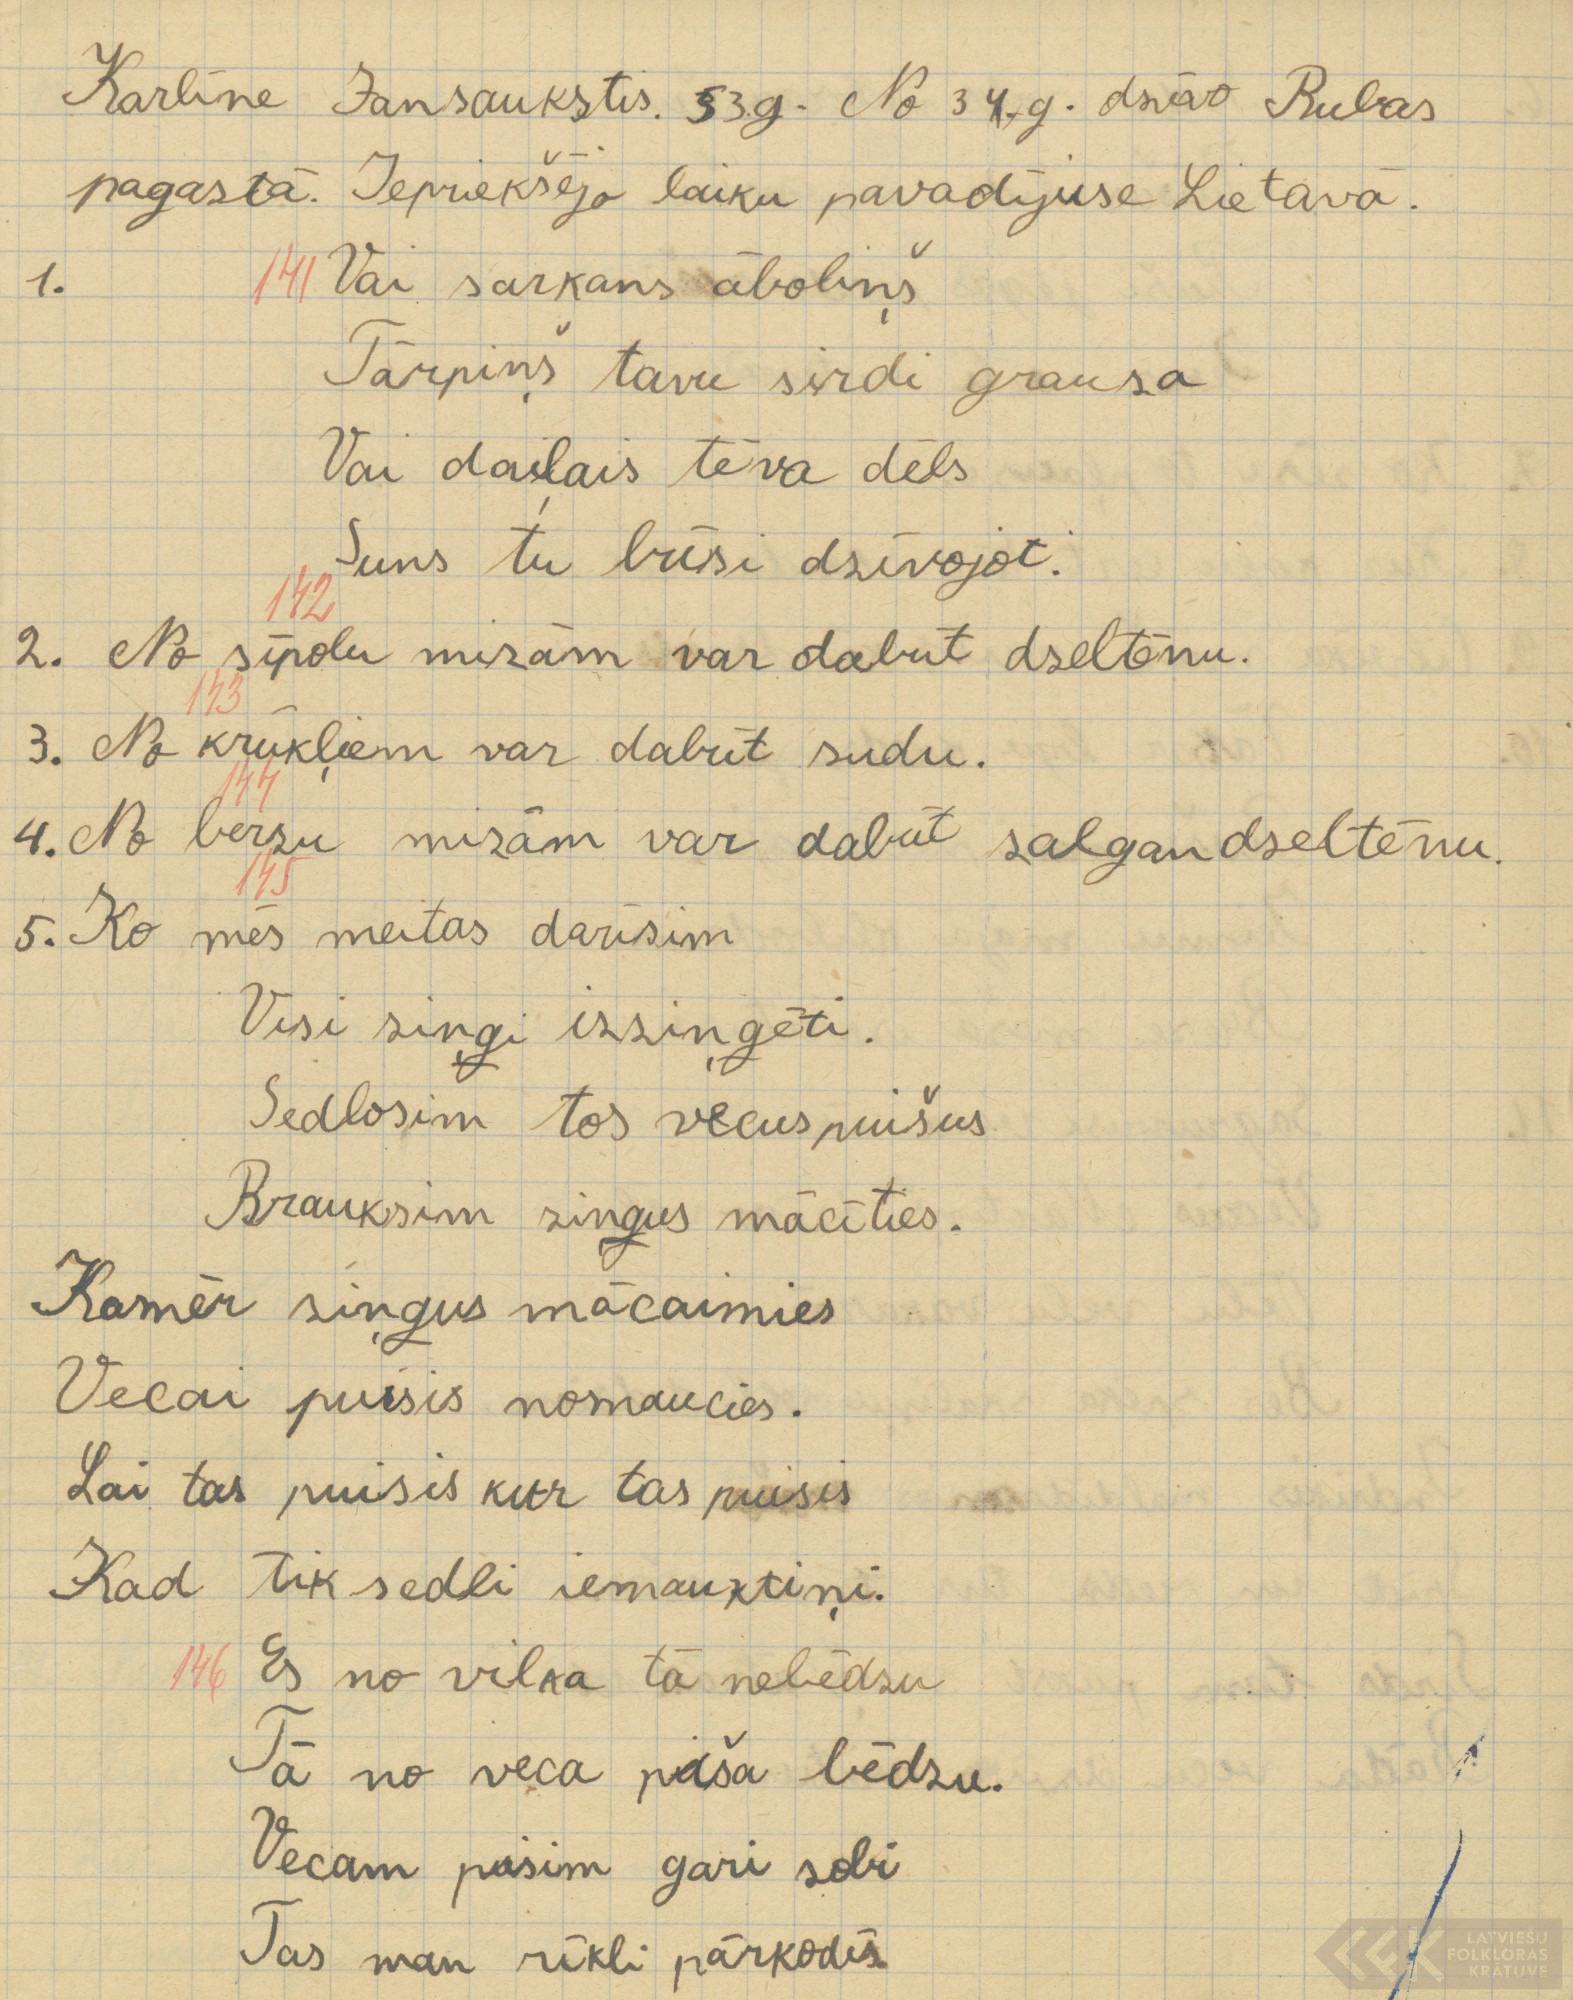 Karlīne Jansaukstis. 53.g. No 34.g. dzīvo Rubas
pagastā. Iepriekšējo laiku pavadījuse Lietavā.
1. 141 Vai sarkans āboliņš
Tārpiņš tavu sirdi grauza
Vai daiļais tēva dēls
Suns tu būsi dzīvojot.
142
2. No sīpolu mizām var dabūt dzeltēnu.
143
3. No krūkļiem var dabūt sudu.
144
4. No bērzu mizām var dabūt zalgandzeltēnu.
145
5. Ko mēs meitas darīsim
Visi ziņģi izziņģēti.
Sedlosim tos vecus puišus
Brauksim zingus mācīties.
Kamēr ziņgus mācaimies
Vecai puisis nomaucies.
Lai tas puisis kur tas puisis
Kad tik sedli iemauktiņi.
146 Es no vilka tā nebēdzu
Tā no veca puša bēdzu.
Vecam pūsim gari zobi
Tas man rīkli pārkodīs.
LATVIEŠU
FOLKLORAS
KRĀTUVE